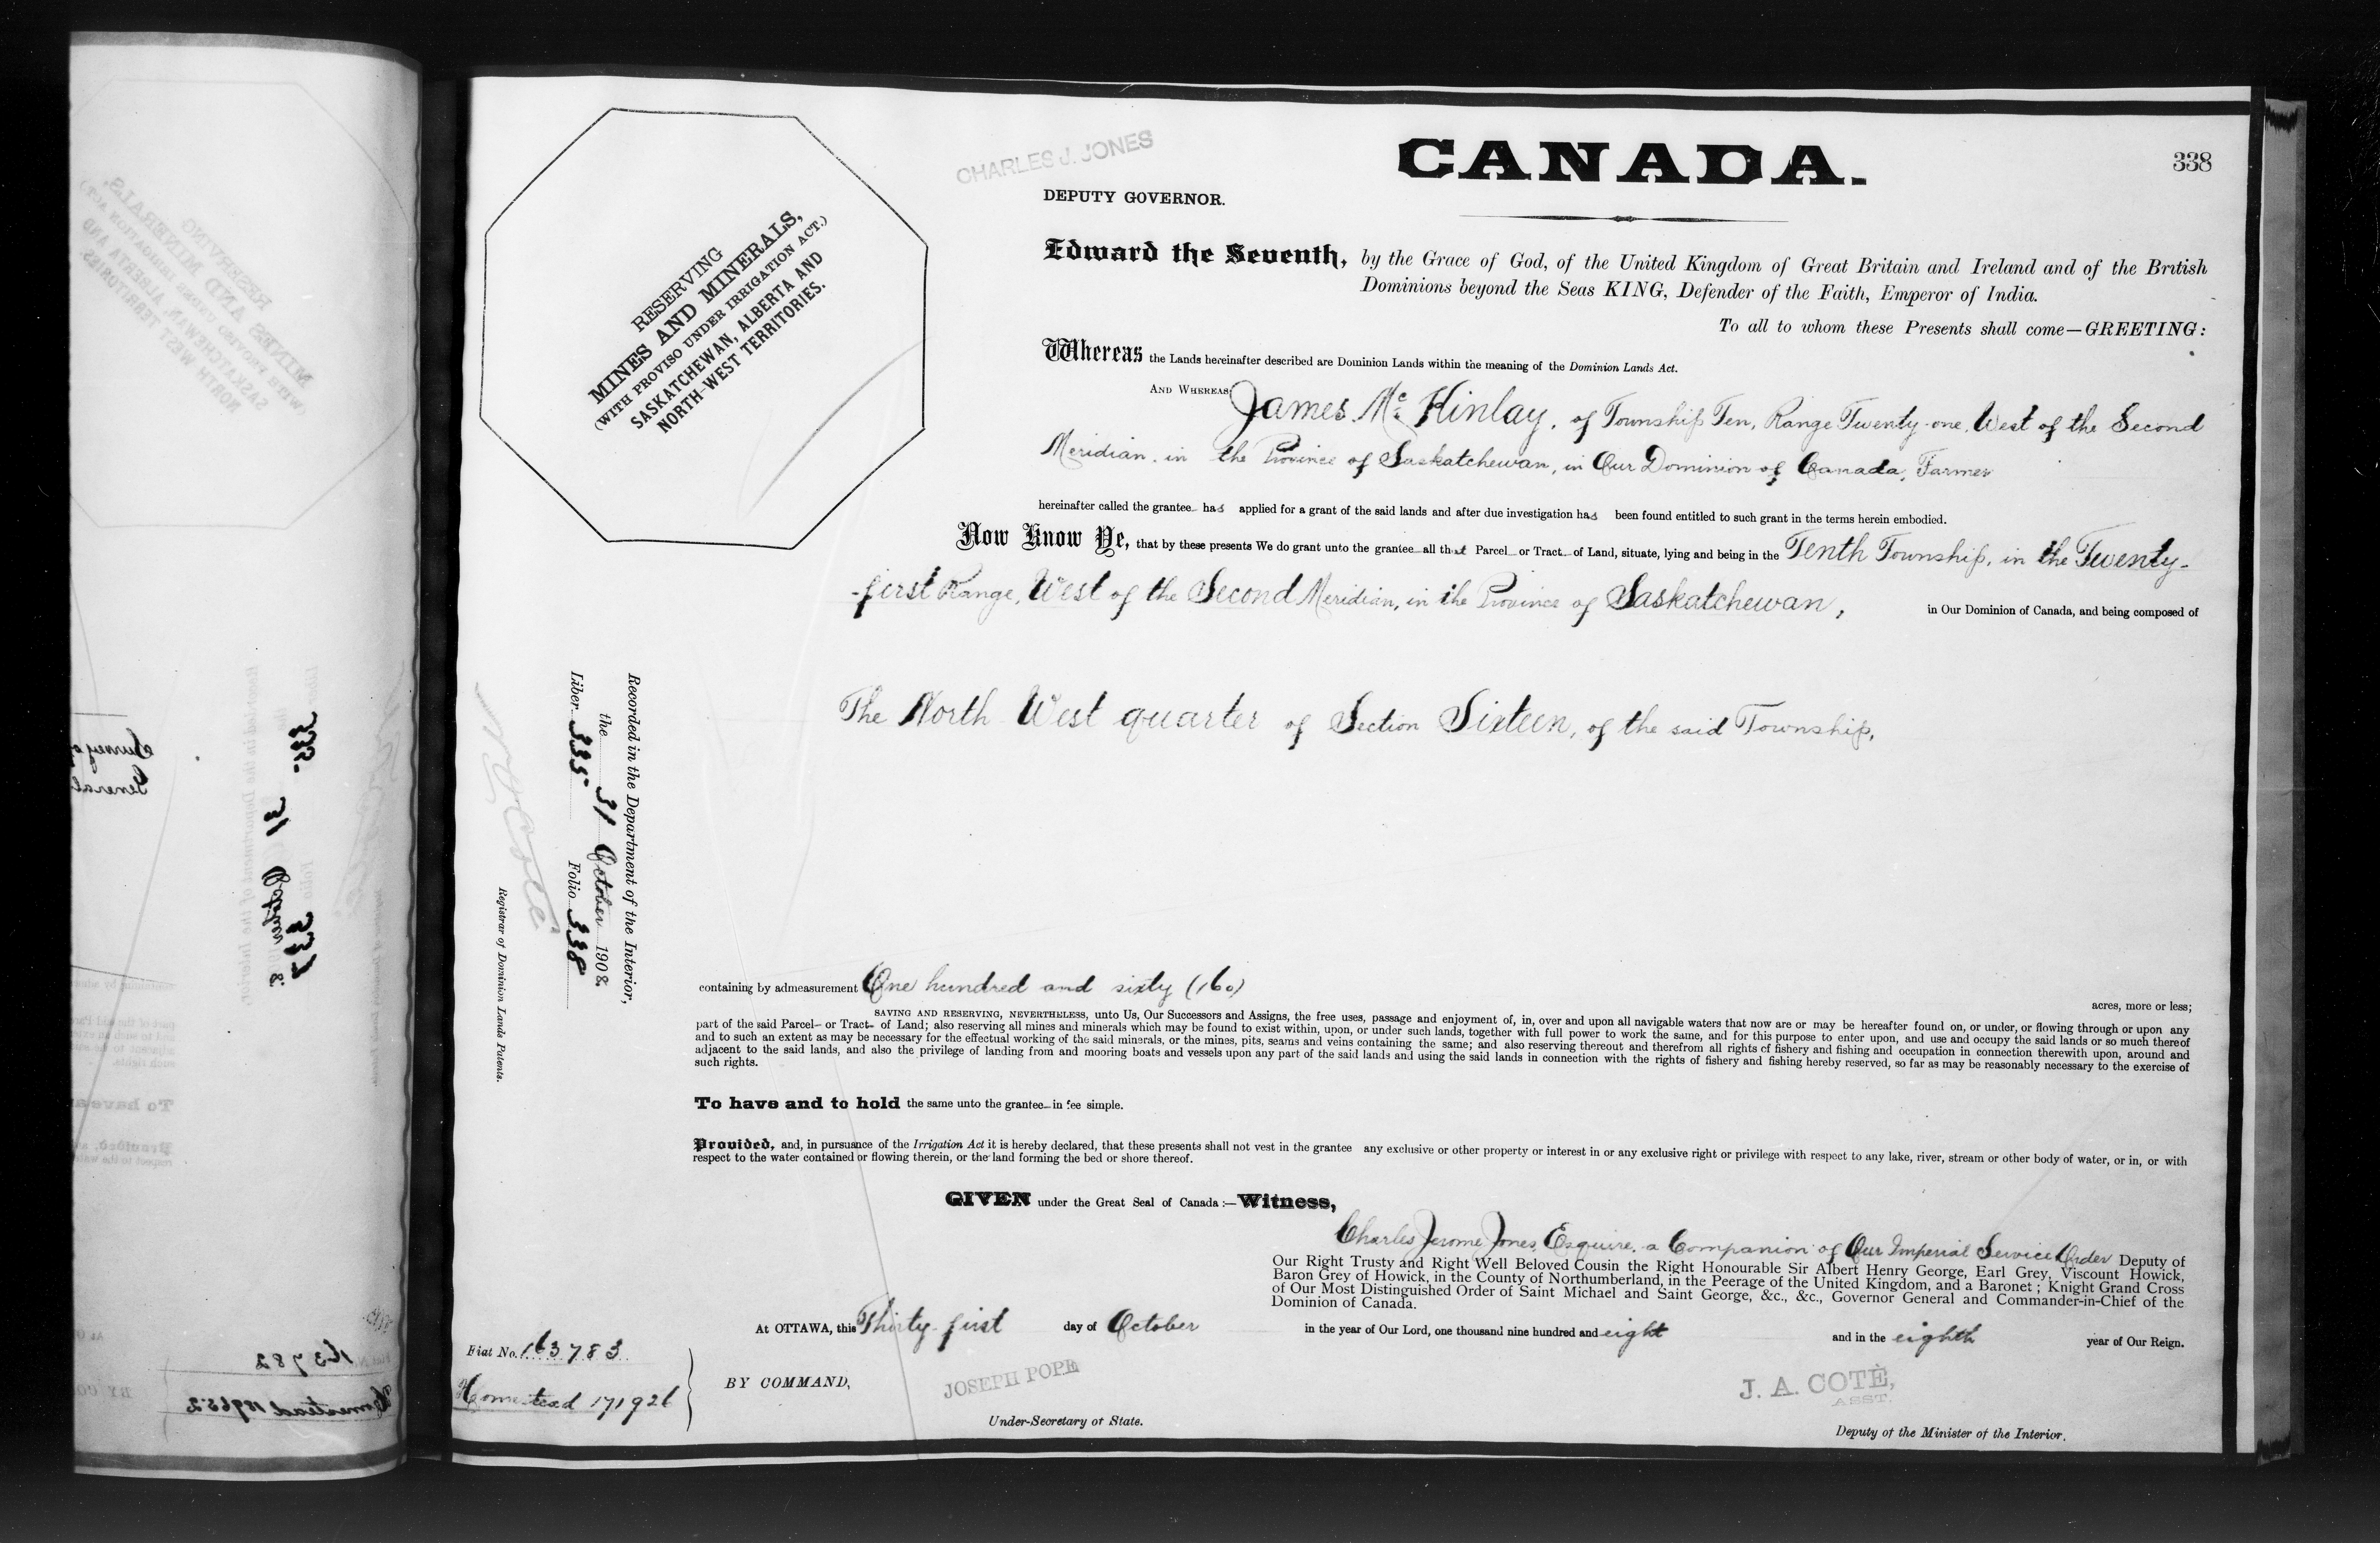 338
CHARLES J. JONES
CANADA.
DEPUTY GOVERNOR.
RESERVING
MINES AND MINERALS,
(WITH PROVISO UNDER IRRIGATION ACT.)
SASKATCHEWAN, ALBERTA AND
NORTH-WEST TERRITORIES.
Edward the Seventh, by the Grace of God, of the United Kingdom of Great Britain and Ireland and of the British
Dominions beyond the Seas KING, Defender of the Faith, Emperor of India.
To all to whom these Presents shall come—GREETING:
Whereas the Lands hereinafter described are Dominion Lands within the meaning of the Dominion Lands Act.
AND WHEREAS James Mc Kinlay, of Township Ten, Range Twenty-one, West of the Second
Meridian, in the Province of Saskatchewan, in Our Dominion of Canada, Farmer
hereinafter called the grantee has applied for a grant of the said lands and after due investigation has been found entitled to such grant in the terms herein embodied.
Now Know Ye, that by these presents We do grant unto the grantee all that Parcel or Tract of Land, situate, lying and being in the Tenth Township, in the Twenty-
-first Range, West of the Second Meridian, in the Province of Saskatchewan, in Our Dominion of Canada, and being composed of
The North West quarter of Section Sixteen, of the said Township,
Recorded in the Department of the Interior,
the 31 October 1908
Liber 335 Folio 338
Registrar of Dominion Lands Patents.
containing by admeasurement One hundred and sixty (160) acres, more or less;
SAVING AND RESERVING, NEVERTHELESS, unto Us, Our Successors and Assigns, the free uses, passage and enjoyment of, in, over and upon all navigable waters that now are or may be hereafter found on, or under, or flowing through or upon any
part of the said Parcel or Tract of Land; also reserving all mines and minerals which may be found to exist within, upon, or under such lands, together with full power to work the same, and for this purpose to enter upon, and use and occupy the said lands or so much thereof
and to such an extent as may be necessary for the effectual working of the said minerals, or the mines, pits, seams and veins containing the same; and also reserving thereout and therefrom all rights of fishery and fishing and occupation in connection therewith upon, around and
adjacent to the said lands, and also the privilege of landing from and mooring boats and vessels upon any part of the said lands and using the said lands in connection with the rights of fishery and fishing hereby reserved, so far as may be reasonably necessary to the exercise of
such rights.
To have and to hold the same unto the grantee in fee simple.
Provided, and, in pursuance of the Irrigation Act it is hereby declared, that these presents shall not vest in the grantee any exclusive or other property or interest in or any exclusive right or privilege with respect to any lake, river, stream or other body of water, or in, or with
respect to the water contained or flowing therein, or the land forming the bed or shore thereof.
GIVEN under the Great Seal of Canada:—Witness,
Charles Jerome Jones, Esquire, a Companion of Our Imperial Service Order Deputy of
Our Right Trusty and Right Well Beloved Cousin the Right Honourable Sir Albert Henry George, Earl Grey, Viscount Howick,
Baron Grey of Howick, in the County of Northumberland, in the Peerage of the United Kingdom, and a Baronet; Knight Grand Cross
of Our Most Distinguished Order of Saint Michael and Saint George, &c., &c., Governor General and Commander-in-Chief of the
Dominion of Canada.
At OTTAWA, this Thirty-first day of October in the year of Our Lord, one thousand nine hundred and eight and in the eighth year of Our Reign.
Fiat No. 163783
Homestead 171926
BY COMMAND,
JOSEPH POPE
Under-Secretary of State.
J. A. COTÈ,
ASST.
Deputy of the Minister of the Interior.